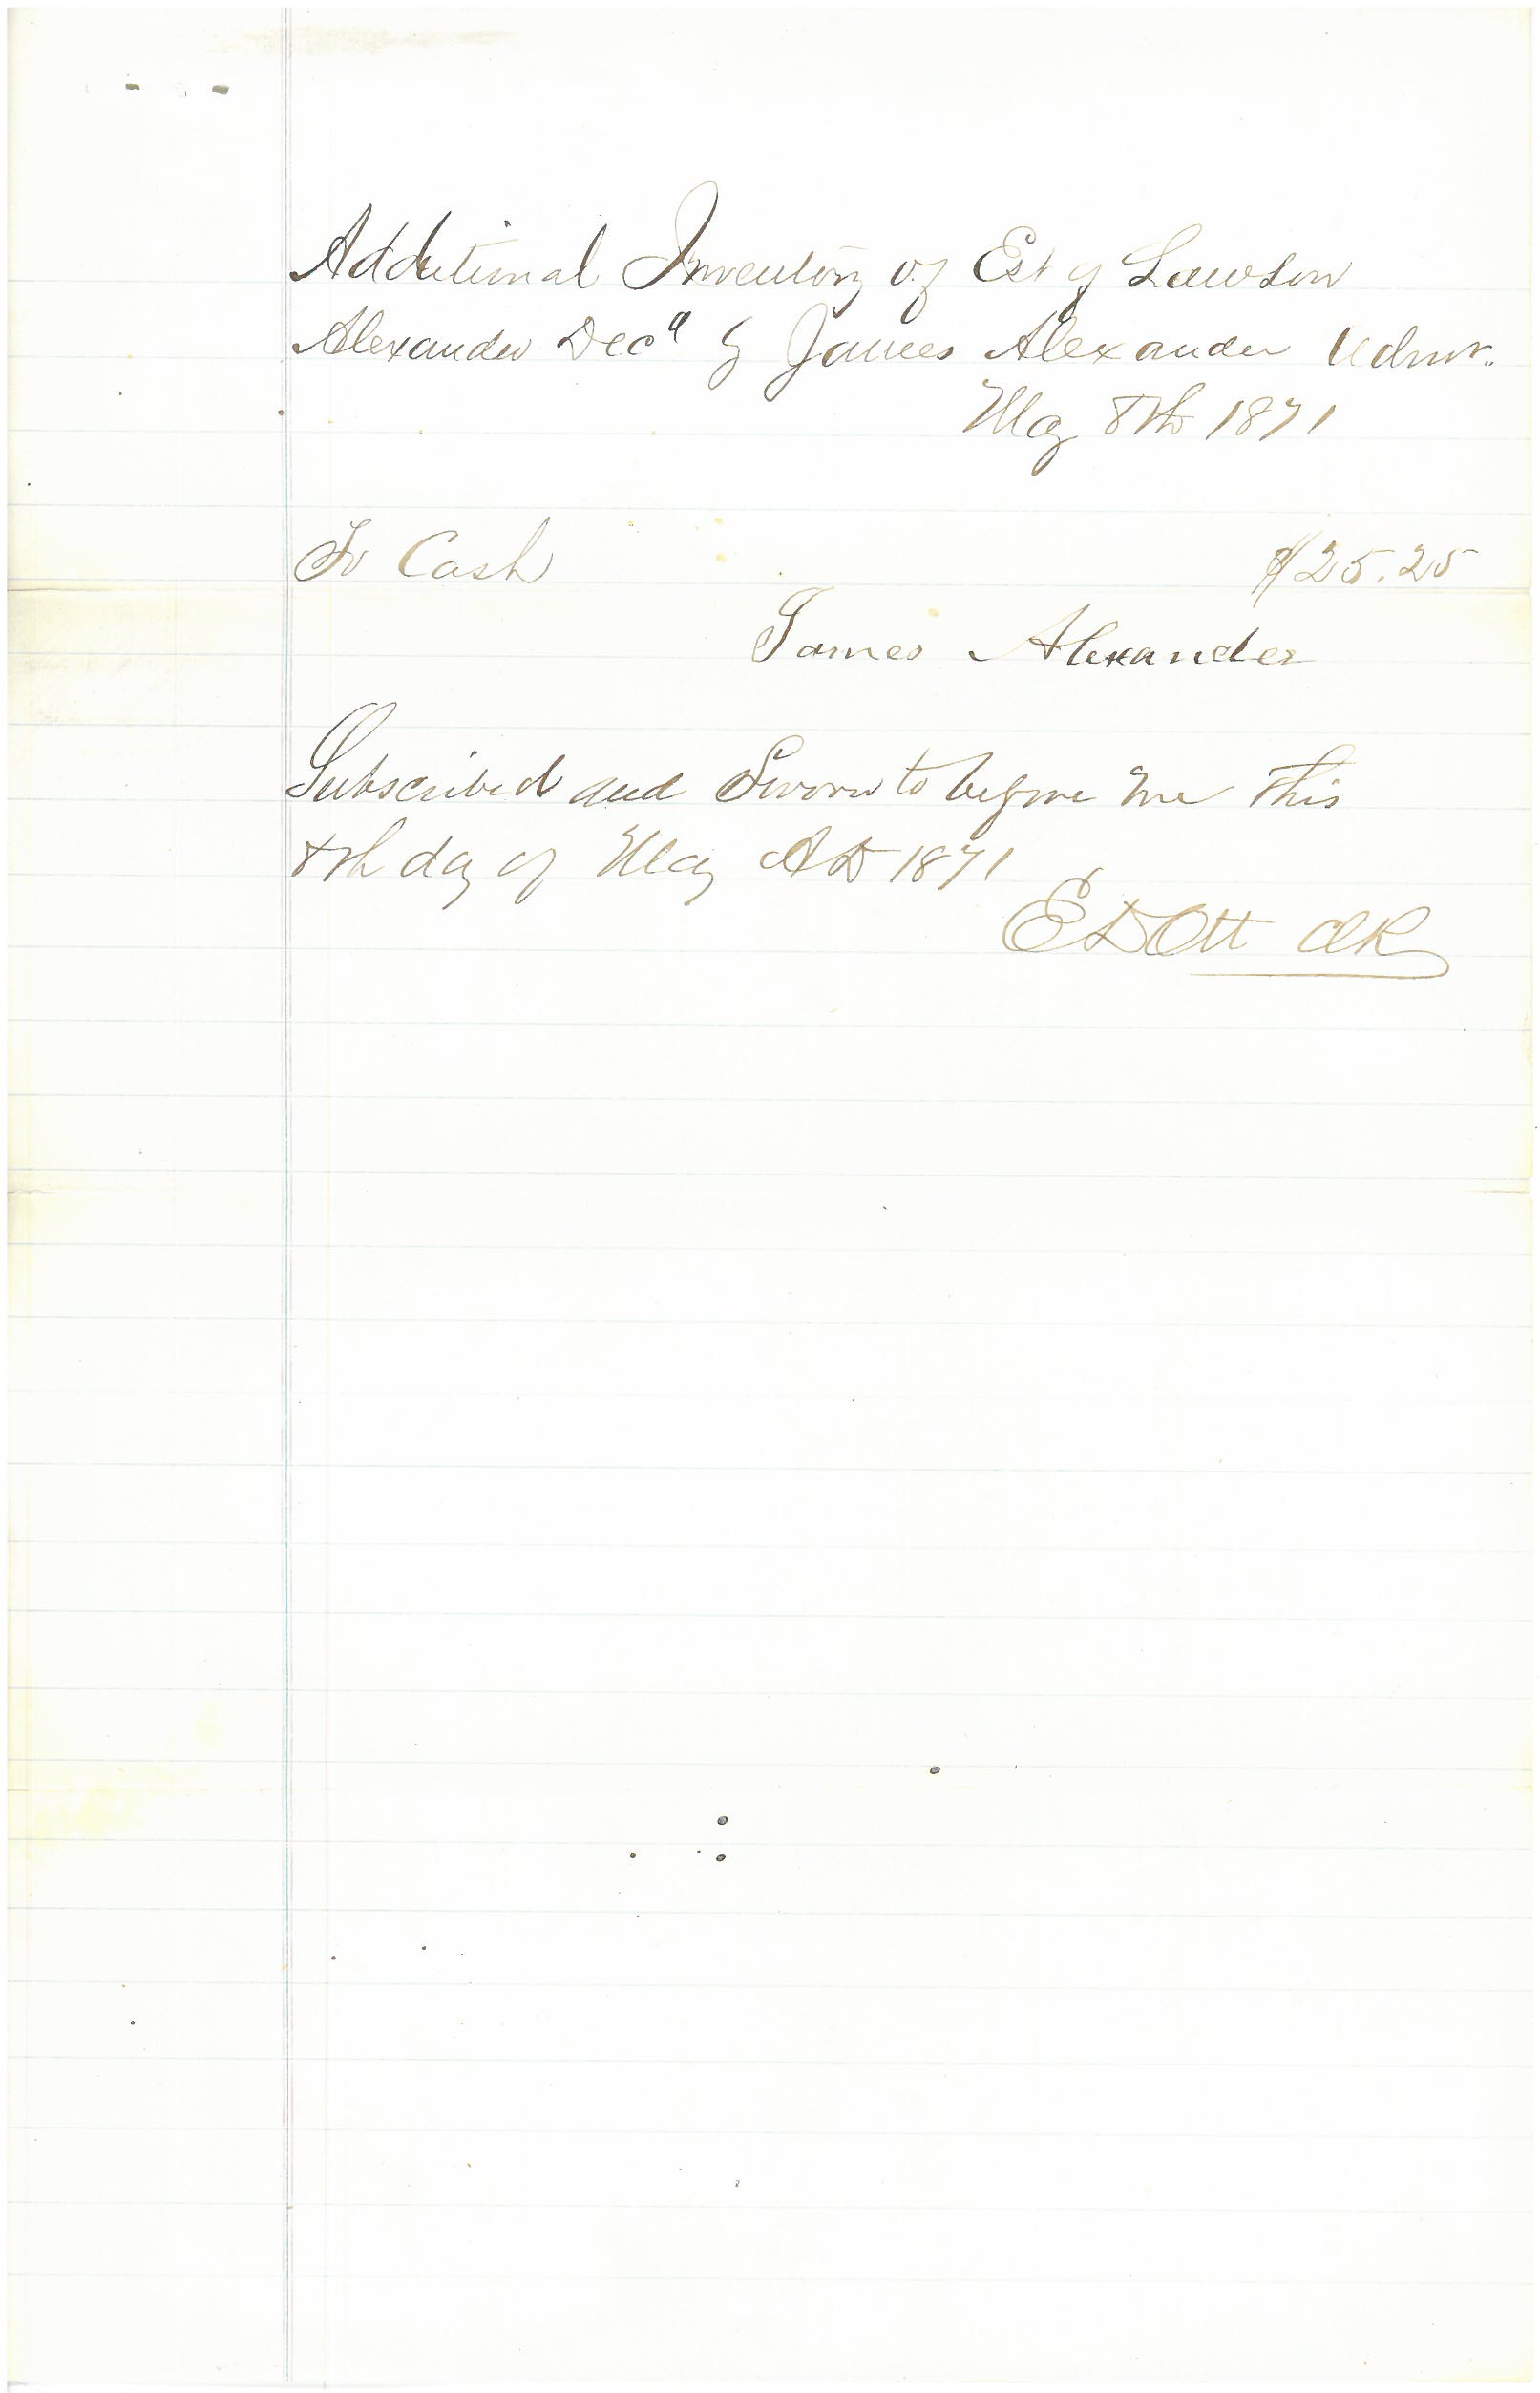 Additional Inventory of Est of Lawson
Alexander Decd by James Alexander Admr.
May 8th 1871
To Cash $25.25
James Alexander
Subscribed and Sworn to before me this
8th day of May AD 1871
E D Ott Clk